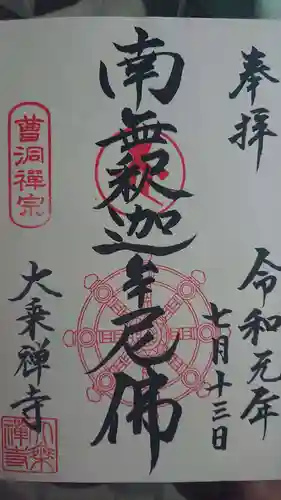 奉拝
令和元年
七月十三日
南無釈迦牟尼佛
曹洞禪宗
大乗禅寺
大乘禅寺